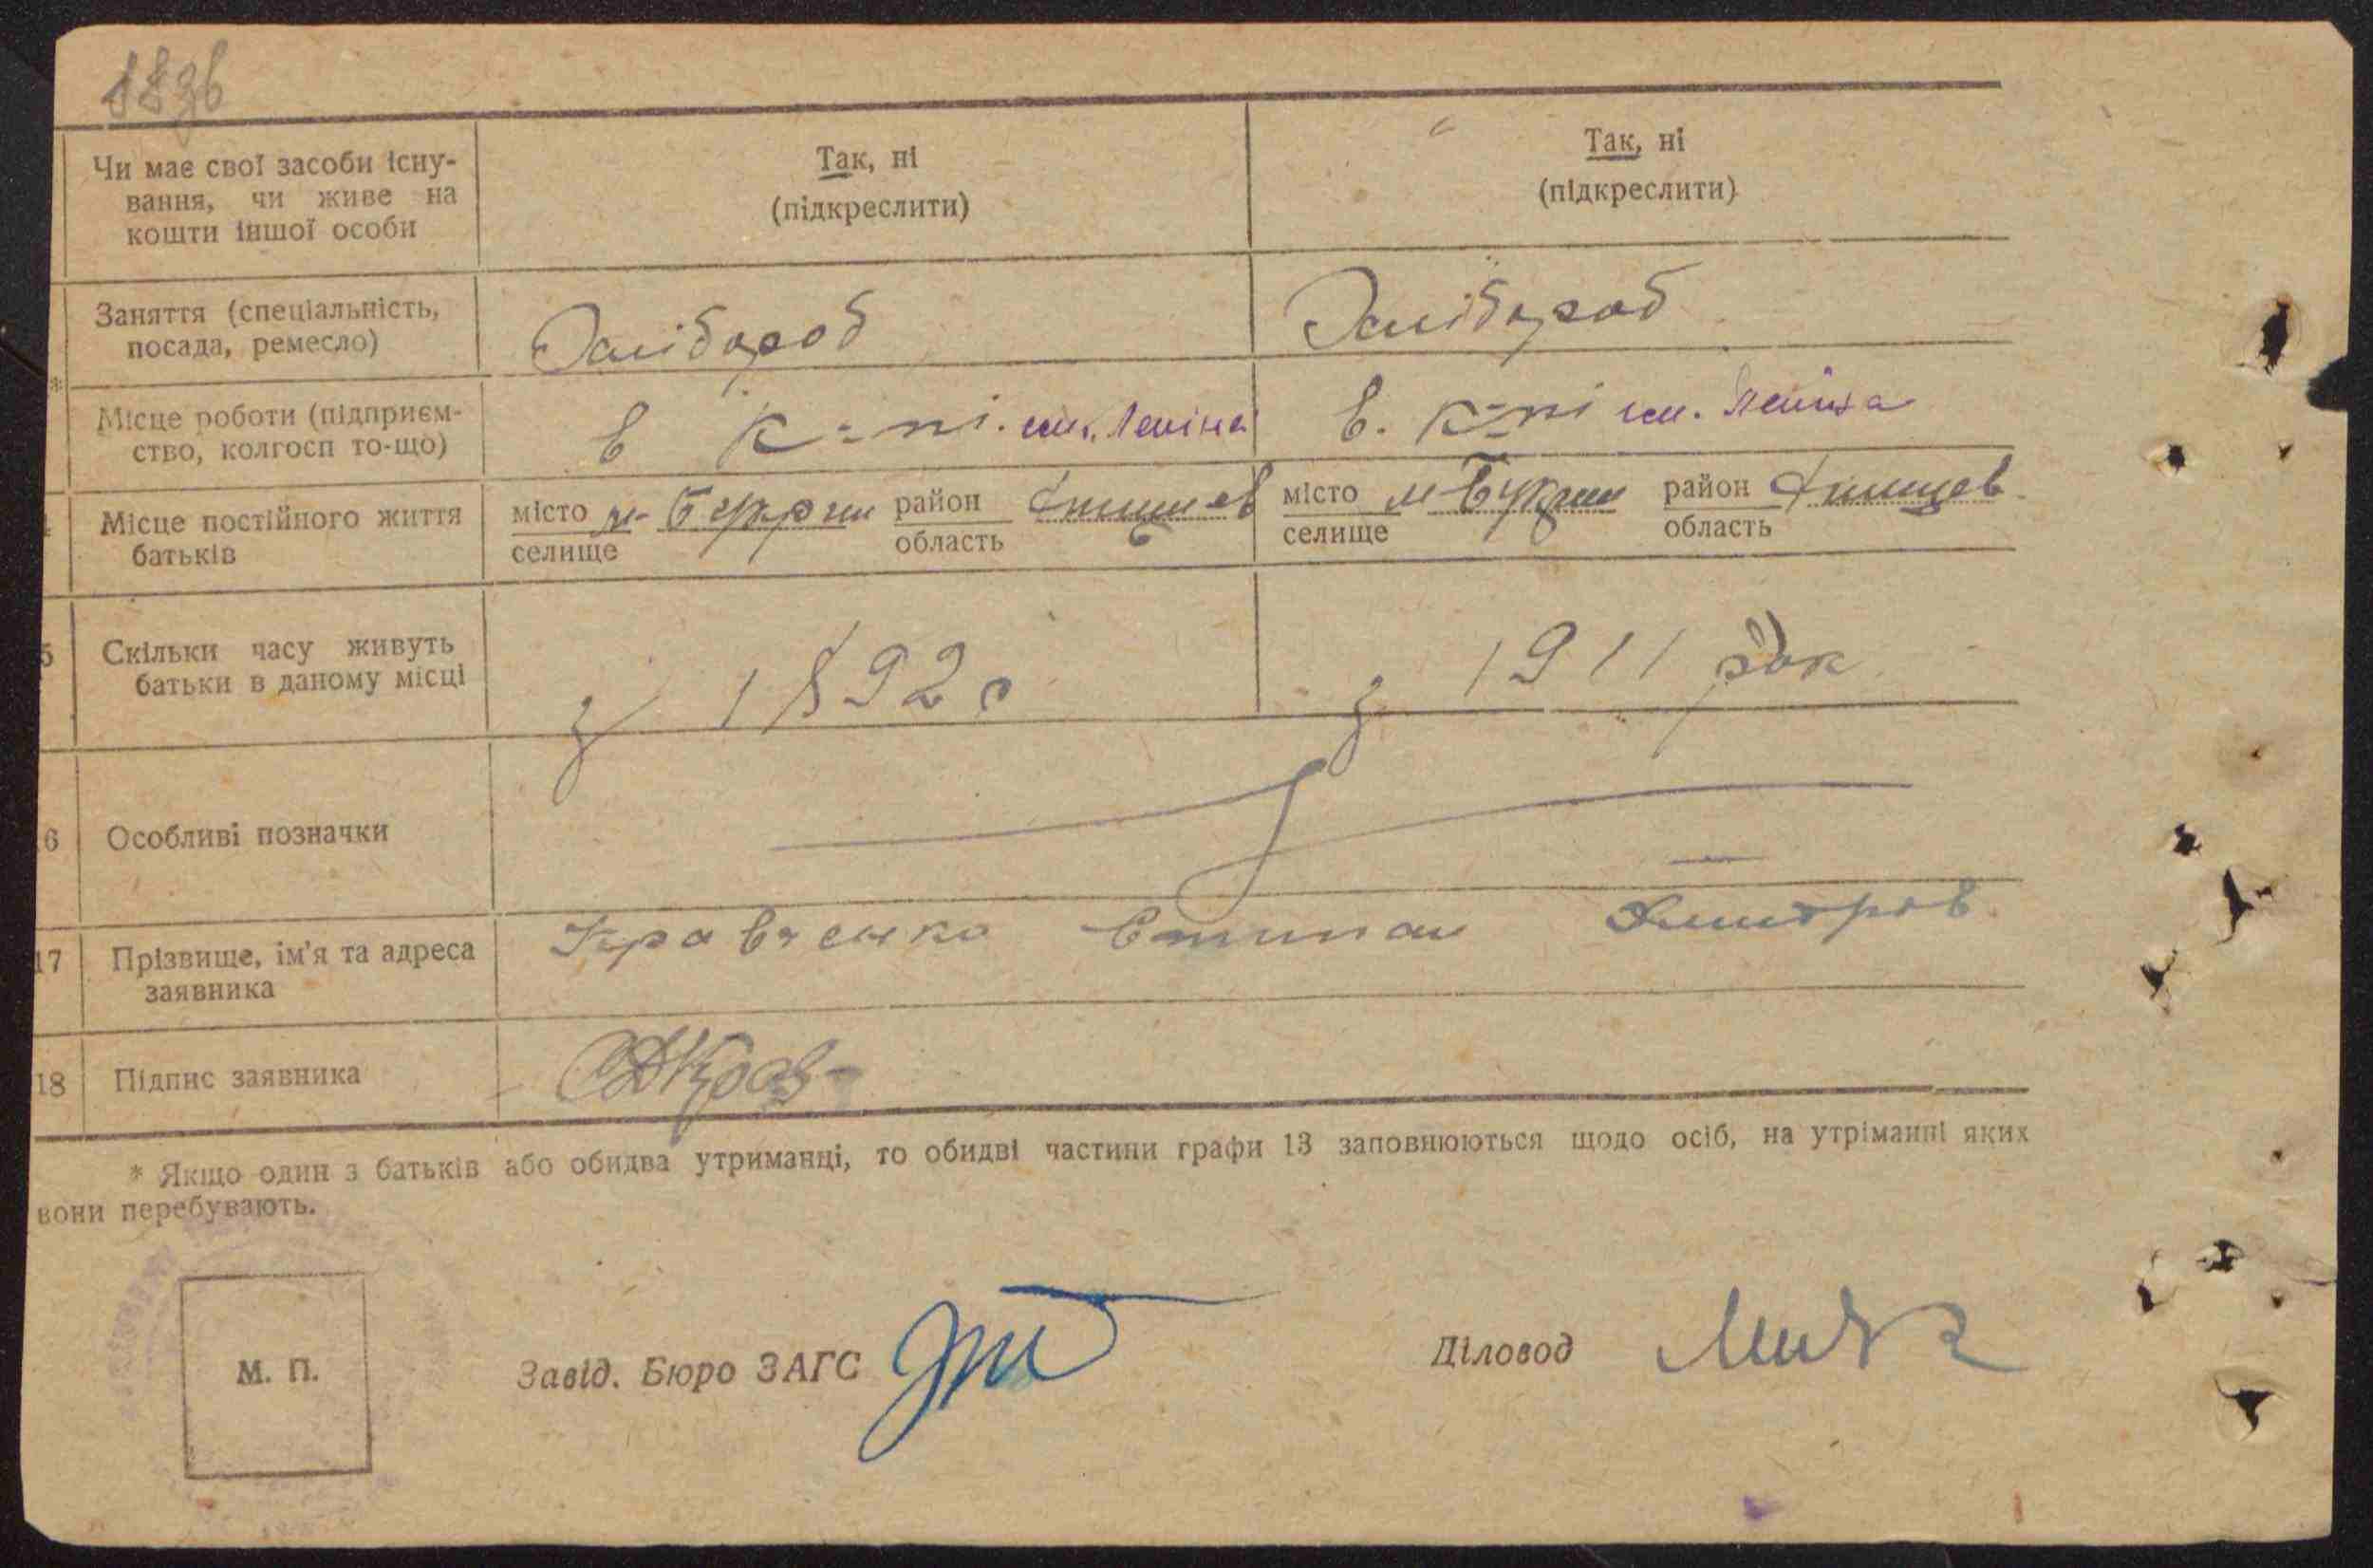 183б
Чи має свої засоби існу-
вання, чи живе на
кошти іншої особи
Так, ні
(підкреслити)
Так, ні
(підкреслити)
Заняття (спеціальність,
посада, ремесло)
Хлібороб
Хлібороб
*
Місце роботи (підприєм-
ство, колгосп то-що)
в к=пі. ім. Леніна
в. к=пі ім. Леніна
Місце постійного життя
батьків
місто м- Букрин район
селище область
місто м Букрин район
селище область
5 Скільки часу живуть
батьки в даному місці
з 1892 р
з 1911 рок
6 Особливі позначки
17 Прізвище, ім'я та адреса
заявника
Кравченко Степан Дмитров
18 Підпис заявника
* Якщо один з батьків або обидва утриманці, то обидві частини графи 13 заповнюються щодо осіб, на утріманні яких
вони перебувають.
М. П.
Завід. Бюро ЗАГС
Діловод